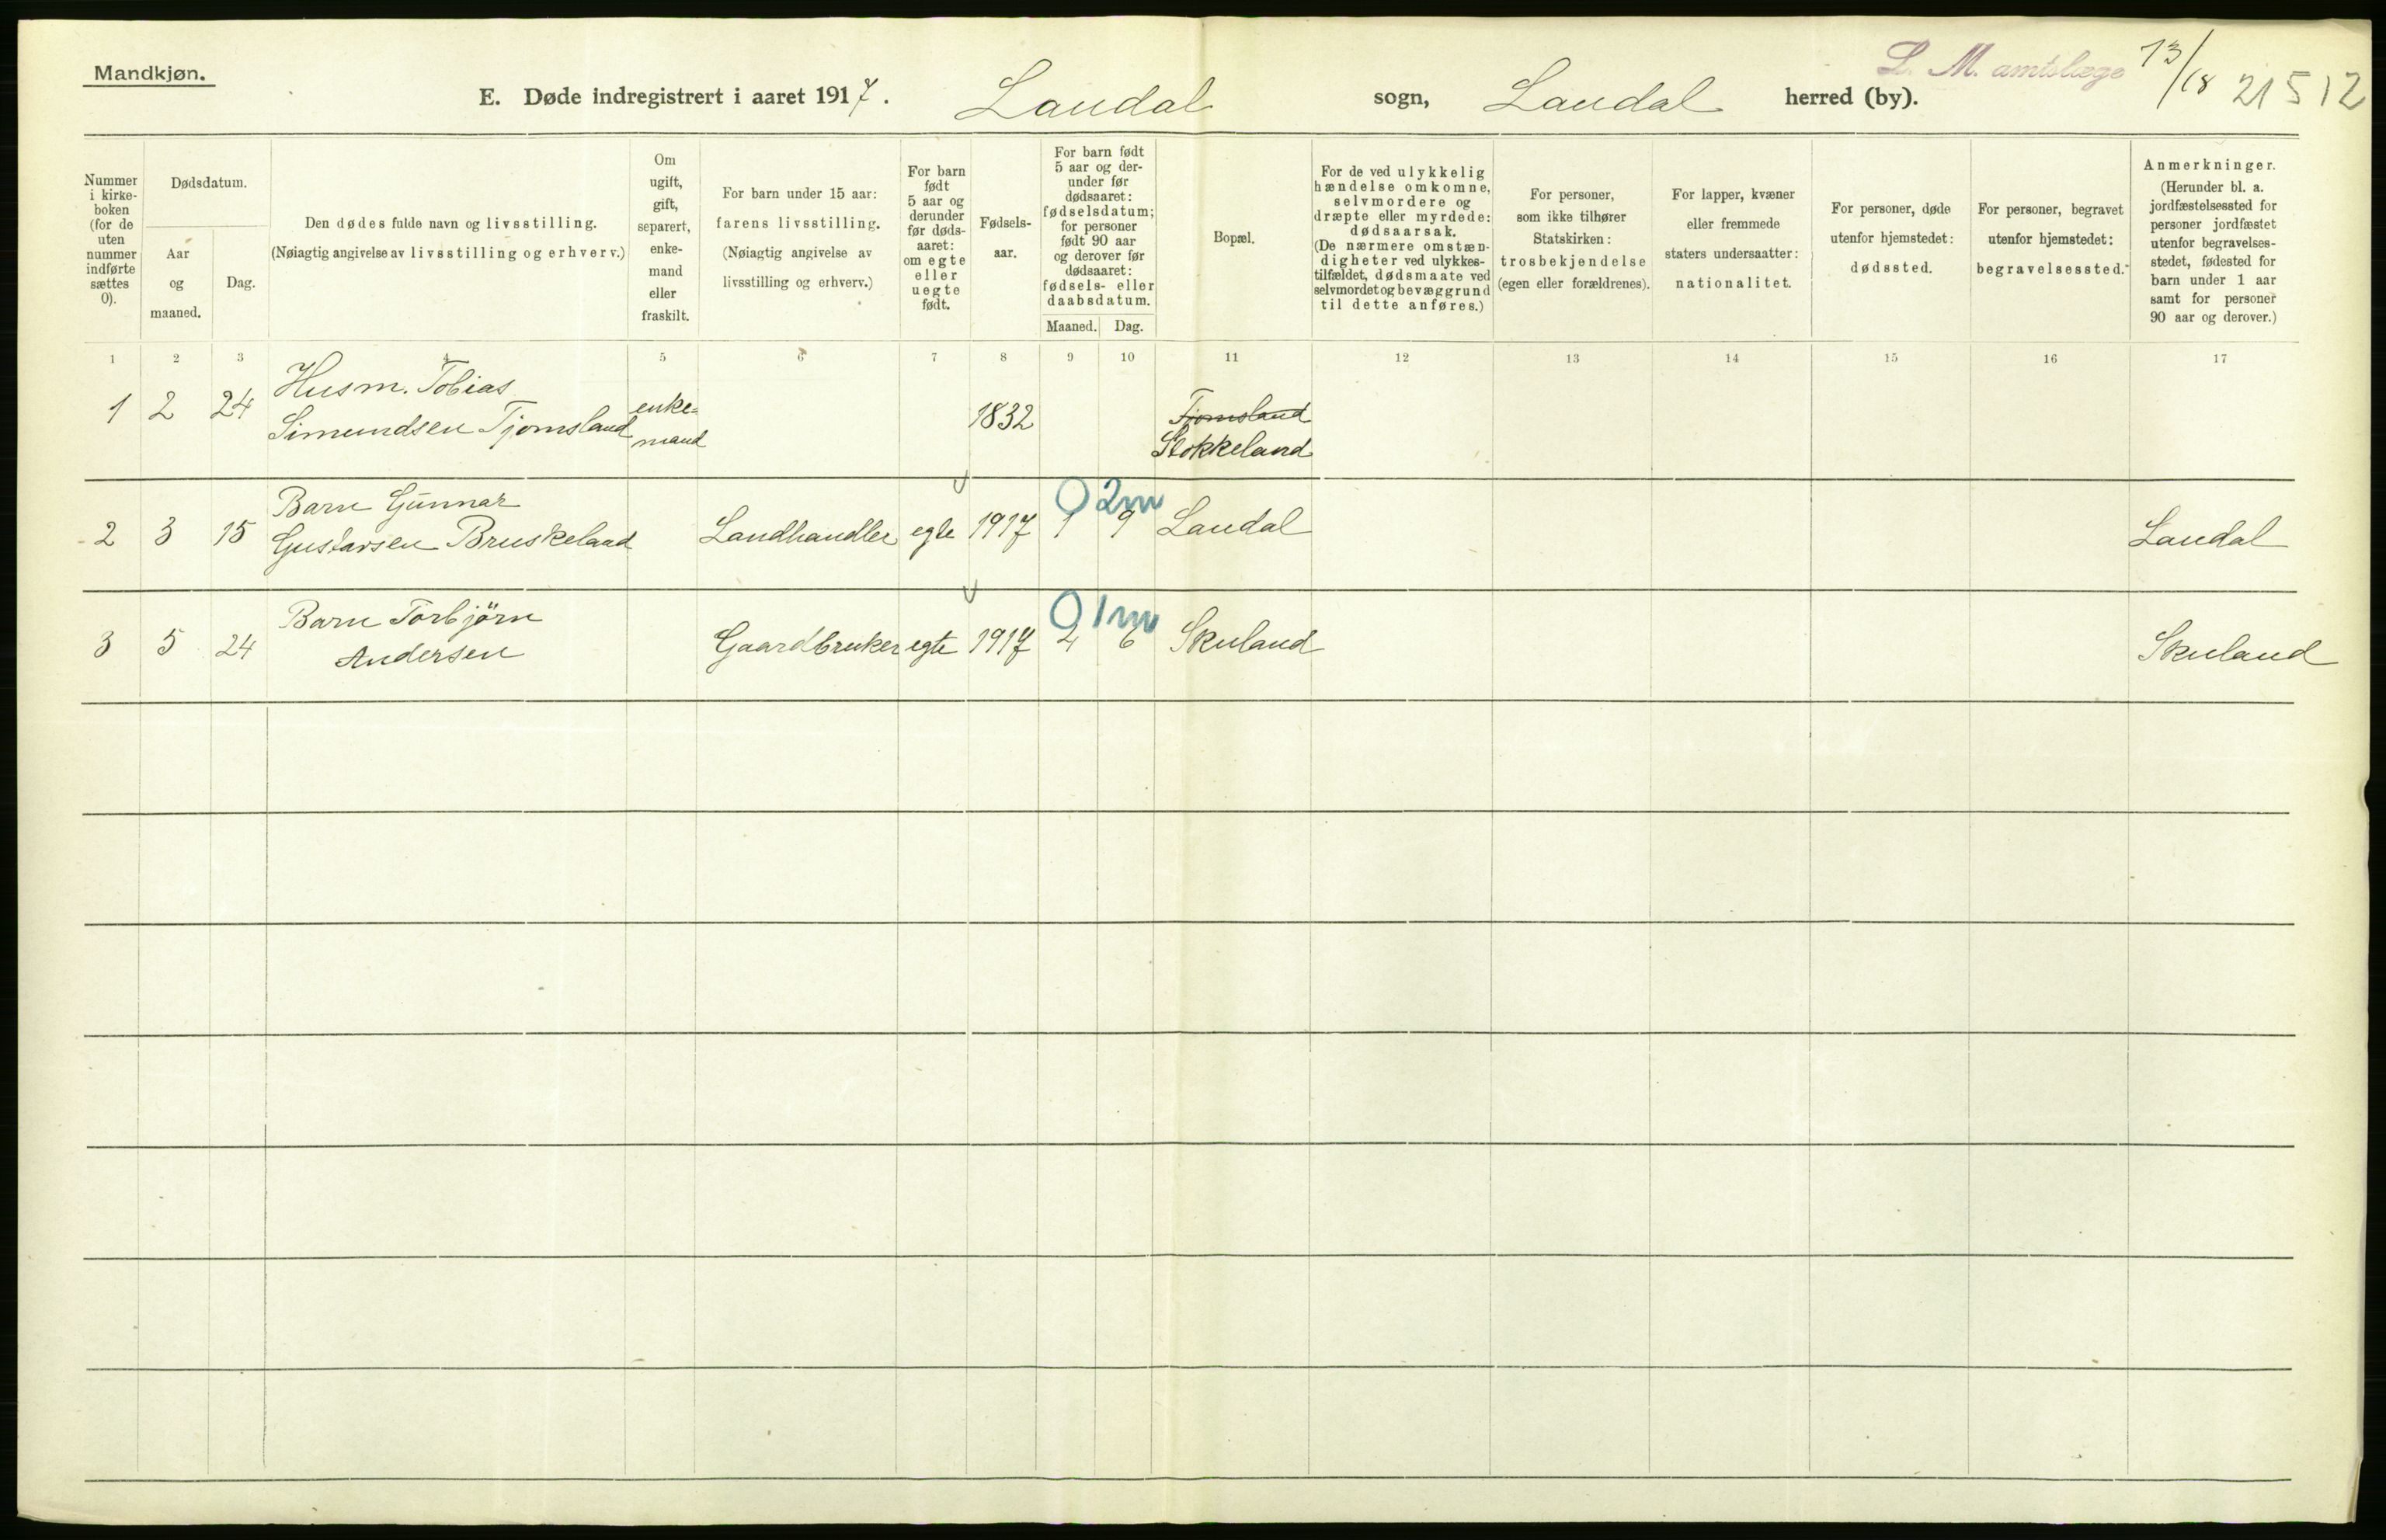 Mandkjøn.
E. Døde indregistrert i aaret 1917. Laudal sogn, Laudal herred (by).
L. M. amtslæge 13/18 21512
Nummer
i kirke-
boken
(for de
uten
nummer
indførte
sættes
0).
Dødsdatum.
Aar
og
maaned.
Dag.
Den dødes fulde navn og livsstilling.
(Nøiagtig angivelse av livsstilling og erhverv.)
Om
ugift,
gift,
separert,
enke-
mand
eller
fraskilt.
For barn under 15 aar:
farens livsstilling.
(Nøiagtig angivelse av
livsstilling og erhverv.)
For barn
født
5 aar og
derunder
før døds-
aaret:
om egte
eller
uegte
født.
Fødsels-
aar.
For barn født
5 aar og der-
under før
dødsaaret:
fødselsdatum;
for personer
født 90 aar
og derover før
dødsaaret:
fødsels- eller
daabsdatum.
Maaned. Dag.
Bopæl.
For de ved ulykkelig
hændelse omkomne,
selvmordere og
dræpte eller myrdede:
dødsaarsak.
(De nærmere omstæn-
digheter ved ulykkes-
tilfældet, dødsmaate ved
selvmordet og bevæggrund
til dette anføres.)
For personer,
som ikke tilhører
Statskirken:
trosbekjendelse
(egen eller forældrenes).
For lapper, kvæner
eller fremmede
staters undersaatter:
nationalitet.
For personer, døde
utenfor hjemstedet:
dødssted.
For personer, begravet
utenfor hjemstedet:
begravelsessted.
Anmerkninger.
(Herunder bl. a.
jordfæstelsessted for
personer jordfæstet
utenfor begravelses-
stedet, fødested for
barn under 1 aar
samt for personer
90 aar og derover.)
1 2 3 4 5 6 7 8 9 10 11 12 13 14 15 16 17
1 2 24 Husm. Tobias
Simundsen Tjomsland enke-
mand 1832 Tjomsland
Stokkeland
2 3 15 Barn Gunnar
Gustavsen Bruskeland Landhandler egte 1917 1 9 Laudal Laudal
0 2m
3 5 24 Barn Torbjörn
Andersen Gaardbruker egte 1917 4 6 Skuland Skuland
0 1m